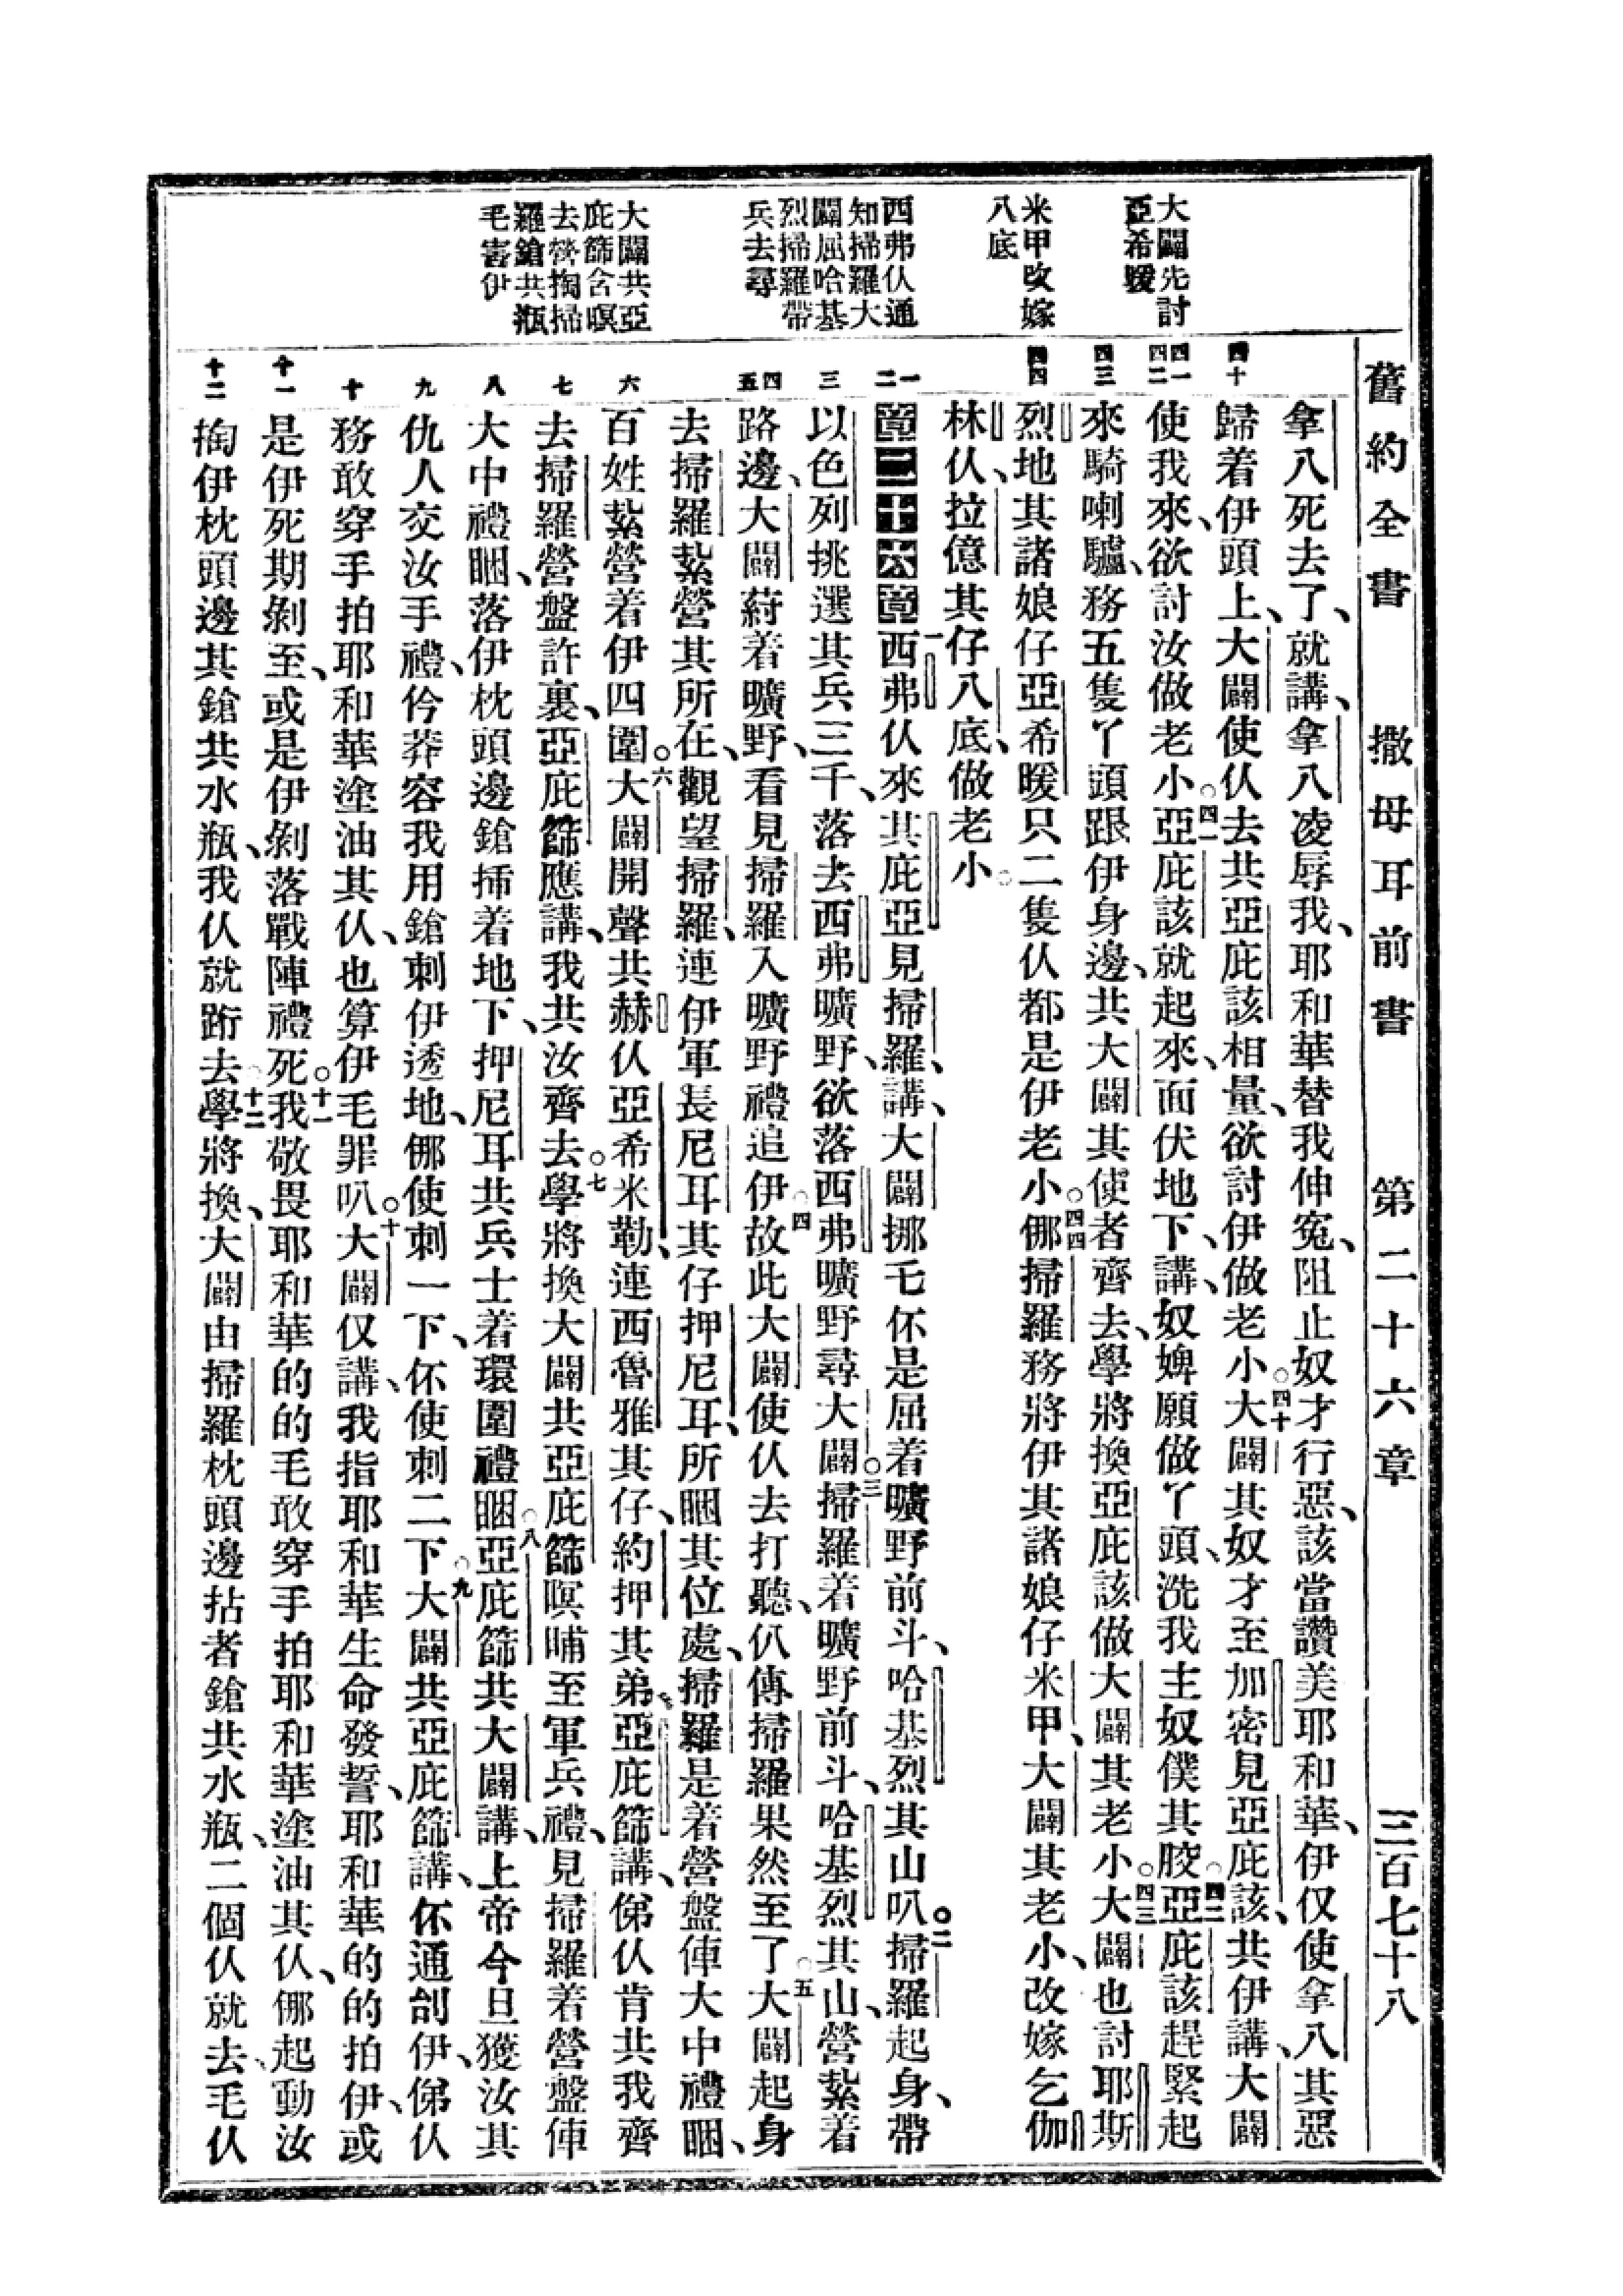 舊約全書 撒母耳前書 第二十六章 三百七十八
大闢先討
亞希暖
米甲改嫁
八底
西弗仈通
知掃羅大
闢屈哈基
烈掃羅帶
兵去尋
大闢共亞
庇篩含暝
去營掏掃
羅鎗共瓶
毛害伊
拿八死去了、就講、拿八凌辱我、耶和華替我伸寃、阻止奴才行惡、該當讚美耶和華、伊仅使拿八其惡
四十 歸着伊頭上、大闢使仈去共亞庇該相量、欲討伊做老小○四十大闢其奴才至加密見亞庇該、共伊講、大闢
四一 四二 使我來、欲討汝做老小○四一亞庇該就起來、面伏地下、講、奴婢願做丫頭、洗我主奴僕其骹○四二亞庇該趕緊起
四三 來騎喇驢、務五隻丫頭跟伊身邊、共大闢其使者齊去、學將換亞庇該做大闢其老小○四三大闢也討耶斯
四四 烈地其諸娘仔亞希暖只二隻仈都是伊老小○四四㑚掃羅務將伊其諸娘仔米甲、大闢其老小、改嫁乞伽
林仈、拉億其仔八底、做老小○
一 二 第二十六章 一西弗仈來其庇亞見掃羅、講、大闢挪毛伓是屈着曠野前斗、哈基烈其山叭○二掃羅起身、帶
三 以色列挑選其兵三千、落去西弗曠野、欲落西弗曠野尋大闢○三掃羅着曠野前斗、哈基烈其山、營紮着
四 五 路邊、大闢葤着曠野、看見掃羅入曠野禮追伊○四故此大闢使仈去打聽、仈傳掃羅果然至了○五大闢起身
去掃羅紮營其所在、觀望掃羅、連伊軍長尼耳其仔押尼耳、所睏其位處、掃羅是着營盤俥大中禮睏、
六 百姓紮營着伊四圍○六大闢開聲共赫仈亞希米勒、連西魯雅其仔、約押其弟、亞庇篩講、俤仈肯共我齊
七 去掃羅營盤許裏、亞庇篩應講、我共汝齊去○七學將換大闢共亞庇篩暝晡至軍兵禮、見掃羅着營盤俥
八 大中禮睏、落伊枕頭邊鎗揷着地下、押尼耳共兵士着環圍禮睏○八亞庇篩共大闢講、上帝今旦獲汝其
九 仇人交汝手禮、伱莽容我用鎗刺伊透地、㑚使刺一下、伓使刺二下○九大闢共亞庇篩講、伓通刣伊、俤仈
十 務敢穿手拍耶和華塗油其仈、也算伊毛罪叭○十大闢仅講、我指耶和華生命發誓、耶和華的的拍伊、或
十一 是伊死期剝至、或是伊剝落戰陣禮死○十一我敬畏耶和華的的毛敢穿手拍耶和華塗油其仈、㑚起動汝
十二 掏伊枕頭邊其鎗共水瓶、我仈就跔去○十二學將換、大闢由掃羅枕頭邊拈者鎗共水瓶、二個仈就去、毛仈